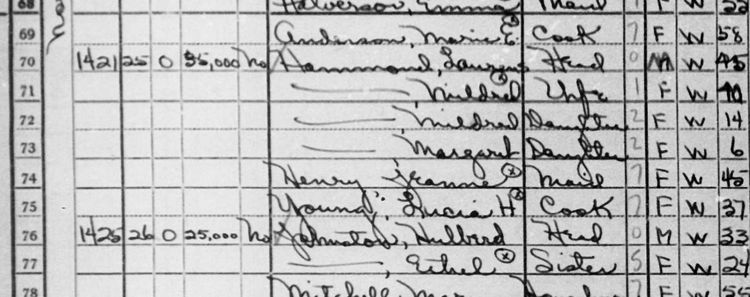 68 Halverson, Emma Maid 7 F W 22
69 Anderson, Marie E. Cook 7 F W 58
70 1421 25 O 35,000 No Hammond, Head 0 M W 45
71 ——, Mildred Wife 1 F W 40
72 ——, Mildred Daughter 2 F W 14
73 ——, Margaret Daughter 2 F W 6
74 Henry, Jeanne Maid 7 F W 45
75 Young, Lucia H Cook 7 F W 37
76 1425 26 O 25,000 No Johnston, Hulberd Head 0 M W 33
77 ——, Ethel Sister 5 F W 24
78 Mitchell, F W